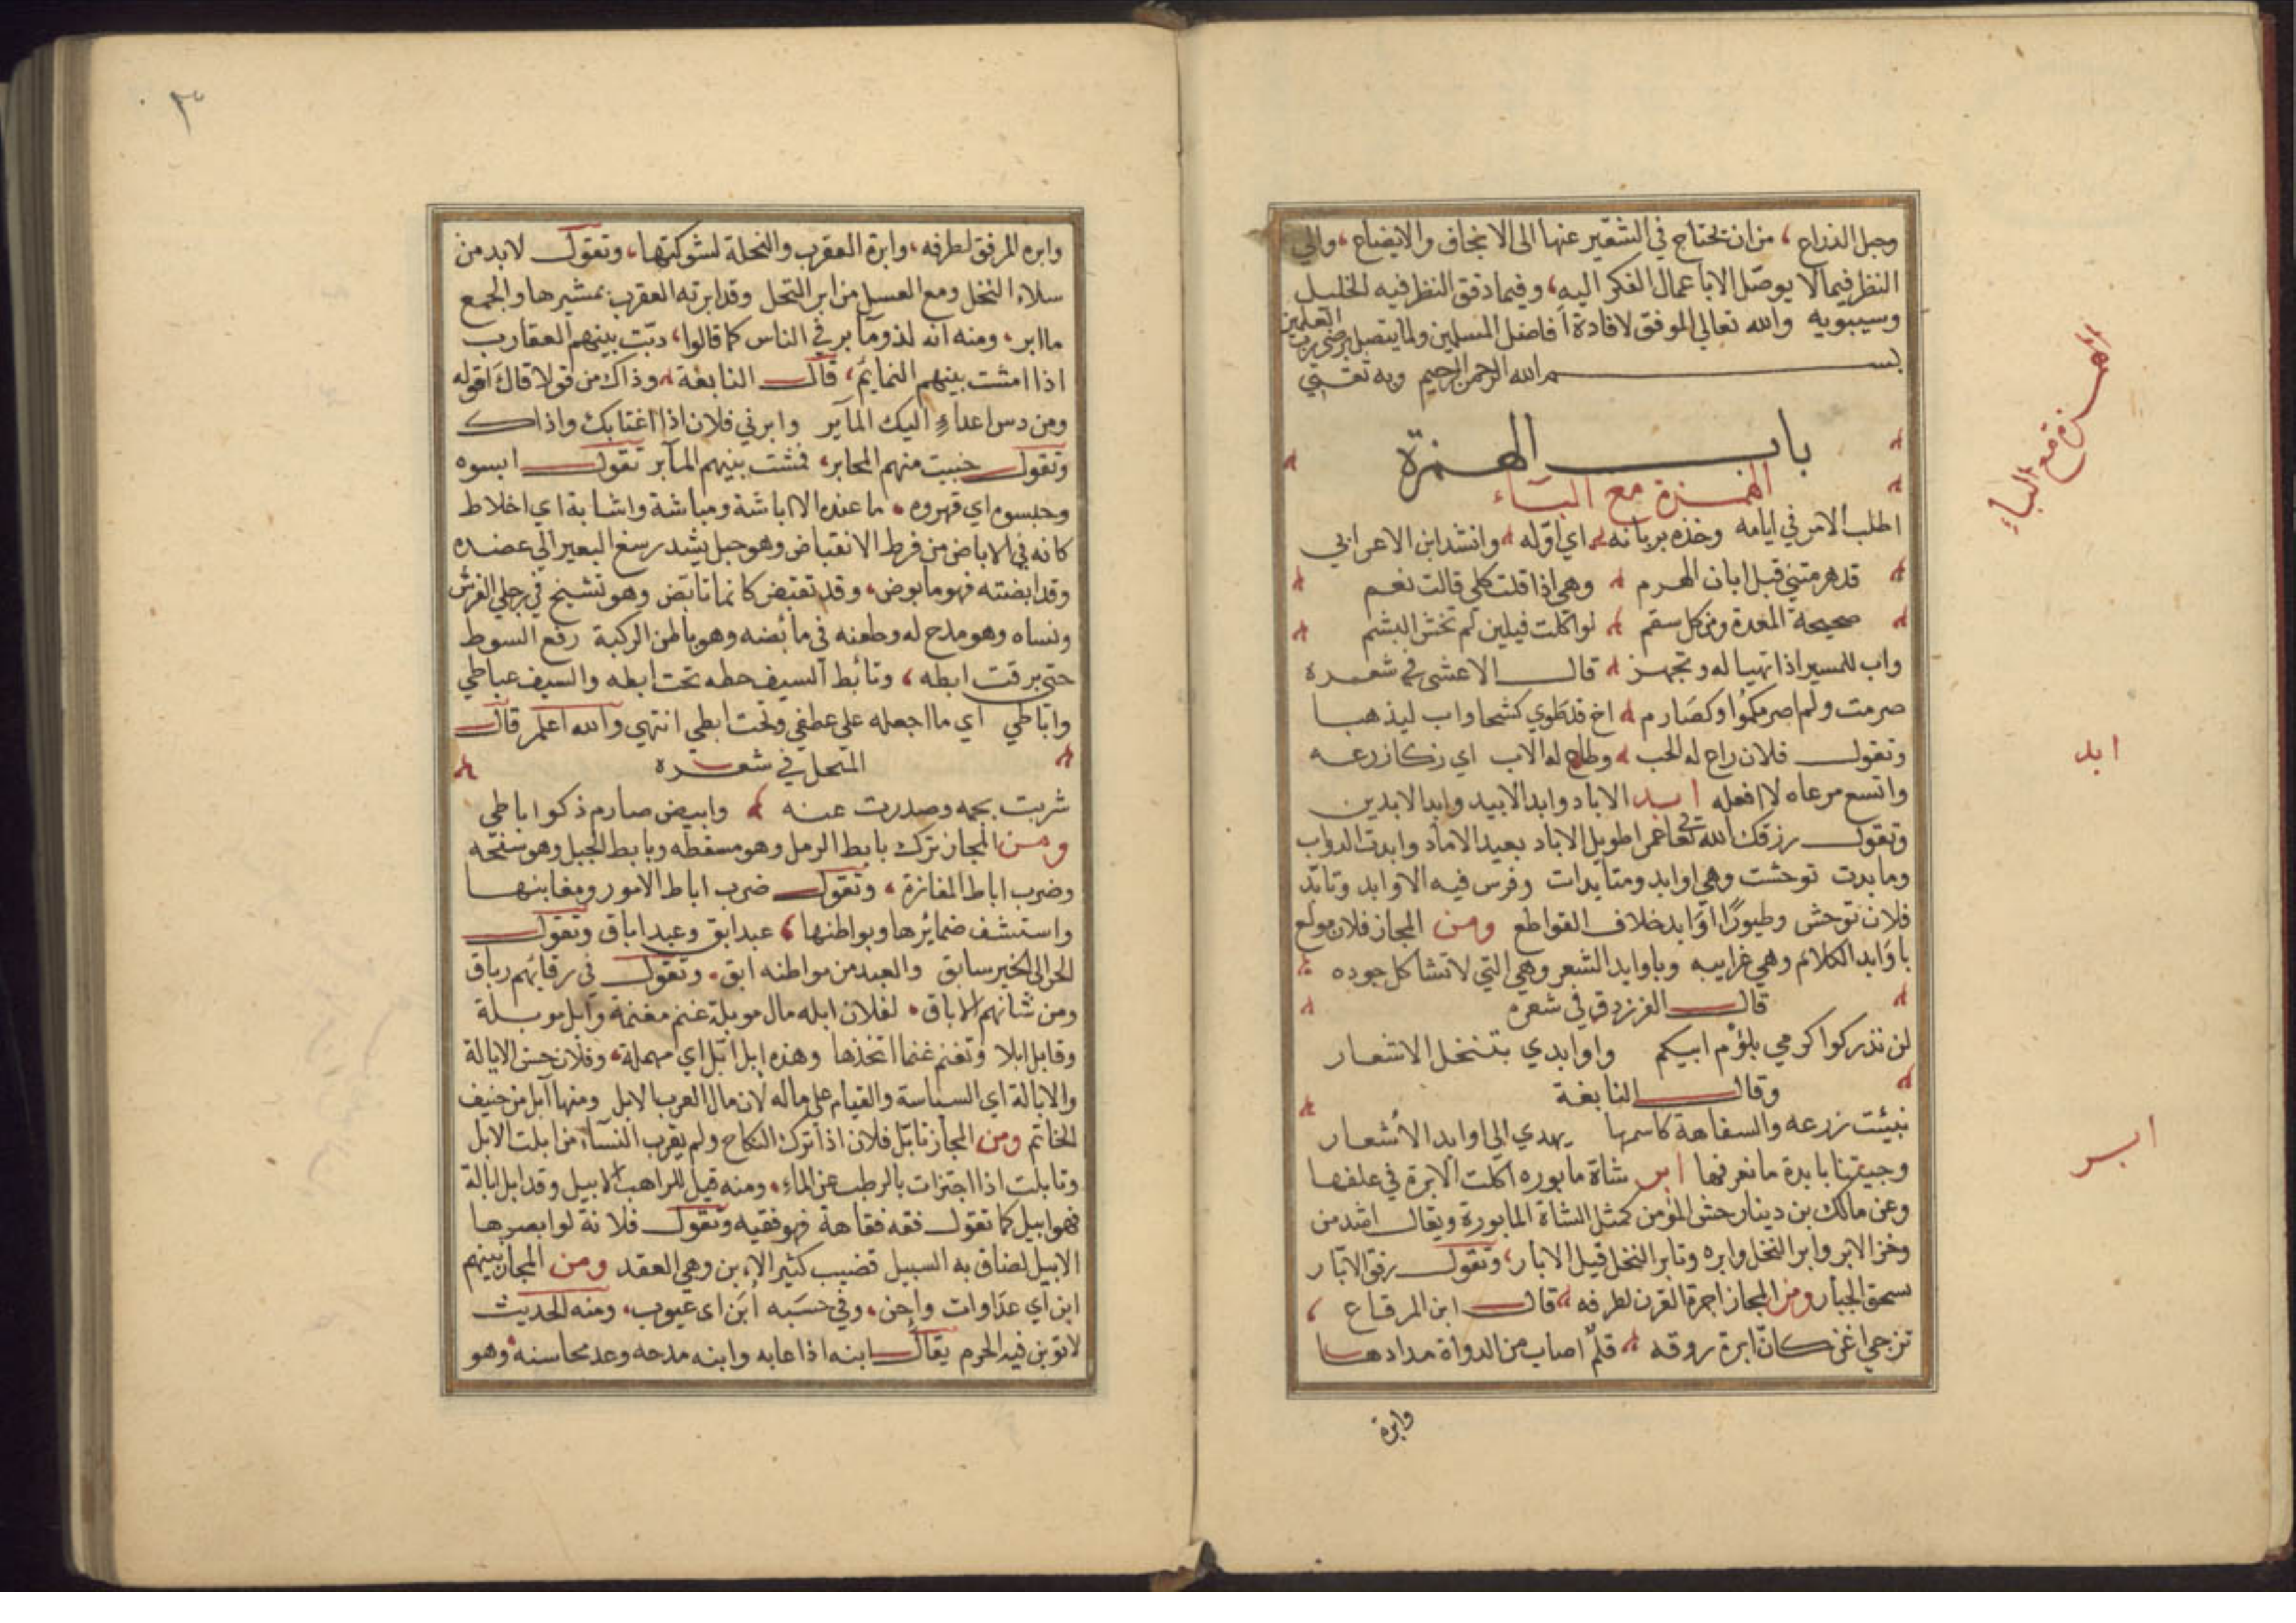 وحبل الذراع، من ان يحتاج في التعبير عنها الى الانجاف والايضاع، والى
النظر فيما لا يوصّل الا باعمال الفكر اليه، وفيما دقق النظر فيه الخليل
وسيبويه والله تعالى الموفق لافادة أفاضل المسلمين ولما يتصل برضى رب العلمين
بسم الله الرحمن الرحيم وبه ثقتي
باب الهمزة
الهمزة مع الباء
الهمزة مع الباء
اطلب الامر في ايامه وخذه بربانه اي اوّله وانشد ابن الاعرابي
قد هرمتني قبل ابان الهرم وهي اذا قلت كلى قالت نعم
صحيحة المعدة من كل سقم لو اكلت فيلين لم تخش البشم
واب للمسير اذا تهيا له وتجهز قال الاعشى في شعره
صرمت ولم اصرمكموا وكصارم اخ قد طوى كشحا واب ليذهبا
وتقول فلان راع له الحب وطاع له الاب اي زكا زرعه
ابد
واتسع مرعاه لا افعله ابد الاباد وابد الابيد وابد الابدين
وتقول رزقك الله تعالى عمرا طويل الاباد بعيد الاماد وابدت الدواب
ومابدت توحشت وهي اوابد ومتابدات وفرس فيه الاوابد وتابّد
فلان توحش وطيورًا أوَابد خلاف القواطع ومن المجاز فلان مولع
بأوَابد الكلام وهي غرايبه وباوابد الشعر وهي التي لا تشاكل جوده
قال الفرزدق في شعره
لن تذركوا كرمي بلؤم ابيكم واوابدي بتنخل الاشعار
وقال النابغة
نبيئت زرعه والسفاهة كاسمها يهدي الى اوابد الأشعار
ابر
وجيتنا بابدة ما نعرفها ابر شاة مابوره اكلت الابرة في علفها
وعن مالك بن دينار حتى المؤمن كمثل الشاة المابورة ويقال اشد من
وخز الابر وابر النخل وابره وتابر النخل قبل الابار، وتقول رفق الابّار
سحق الجبار ومن المجاز اجرة القرن لطرفه قال ابن الرقاع
تزجي اغن كان ابرة روقه قلم اصاب من الدواة مدادها
وابرة
٣
وابره المرفق لطرفه، وابرة العقرب والنحلة لشوكتها، وتقول لا بد من
سلاء النخل ومع العسل من ابر النحل وقد ابرته العقرب بمشبرها والجمع
ماابر، ومنه انه لذو مآبر في الناس كما قالوا، دبّت بينهم العقارب
اذا امشت بينهم النمايم، قال النابغة وذاك من قول لا قال اقوله
ومن دس اعداءٍ اليك المآير وابرني فلان اذا اغتابك واذاك
وتقول خبيت منهم المحابر، فمشت بينهم المآبر تقول ابسوه
وحبسوه اي قهروه، ما عنده الا اباشة ومباشة واشابة اي اخلاط
كانه في الاباض من فرط الانقباض وهو حبل يشد رسغ البعير الى عضده
وقد ابضته فهو مابوض، وقد تقبض كانما تابّض وهو تشنج في رجلي الفرس
ونساه وهو مدح له وطعنه في مأبضه وهو باطن الركبة رفع السوط
حتى برقت ابطه، وتأبط السيف حطه تحت ابطه والسيف عباطي
واباطي أي مااجعله على عطفي وتحت ابطي انتهي والله اعلم قال
المنحل في شعره
شربت بجمه وصدرت عنه وابيض صارم ذكر اباطي
ومن المجاز نزك بابط الرمل وهو مسقطه وبابط الجبل وهو سفحه
وضرب اباط المفازة، وتقول ضرب اباط الامور ومغابنها
واستشف ضمائرها وبواطنها، عبد ابق وعبد اباق وتقول
الحر الى الخير سابق والعبد من مواطنه ابق، وتقول في رقابهم رباق
ومن شانهم الاباق، لفلان ابله مال موبلة غنم مغنمة وابل موبلة
وقابل ابلا وتغنم غنما اتخذها وهذه ابل ابّل اي مهملة، وفلان حسن الايالة
والابالة اي السياسة والقيام على ماله لان مال العرب الابل ومنها آبل من حنيف
الخاتم ومن المجاز تابّل فلان اذا ترك النكاح ولم يقرب النساء من ابلت الابل
وتابلت اذا اجتزات بالرطب عن الماء، ومنه قيل للراهب الابيل وقد ابل ابالة
فهو ابيل كما تقول فقه فقاهة فهو فقيه وتقول فلانة لو ابصرها
الابيل لضاق به السبيل قضيب كثير الابن وهي العقد ومن المجاز بينهم
ابن اي عدَاوات واِحن، وفي حسَبه أبَن اى عيوب، ومنه الحديث
لا توبن فيه الحرم يقال ابنه اذا عابه وابنه مدحه وعد محاسنه وهو